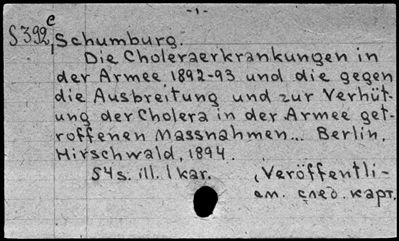 -1-
S392c, Schumburg.
Die Choleraerkrankungen in
der Armee 1892-93 und die gegen
die Ausbreitung und zur Verhüt-
ung der Cholera in der Armee get-
roffenen Massnahmen... Berlin,
Hirschwald, 1894.
54s. ill. 1 kar. ,Veröffentli-
см. след. карт.